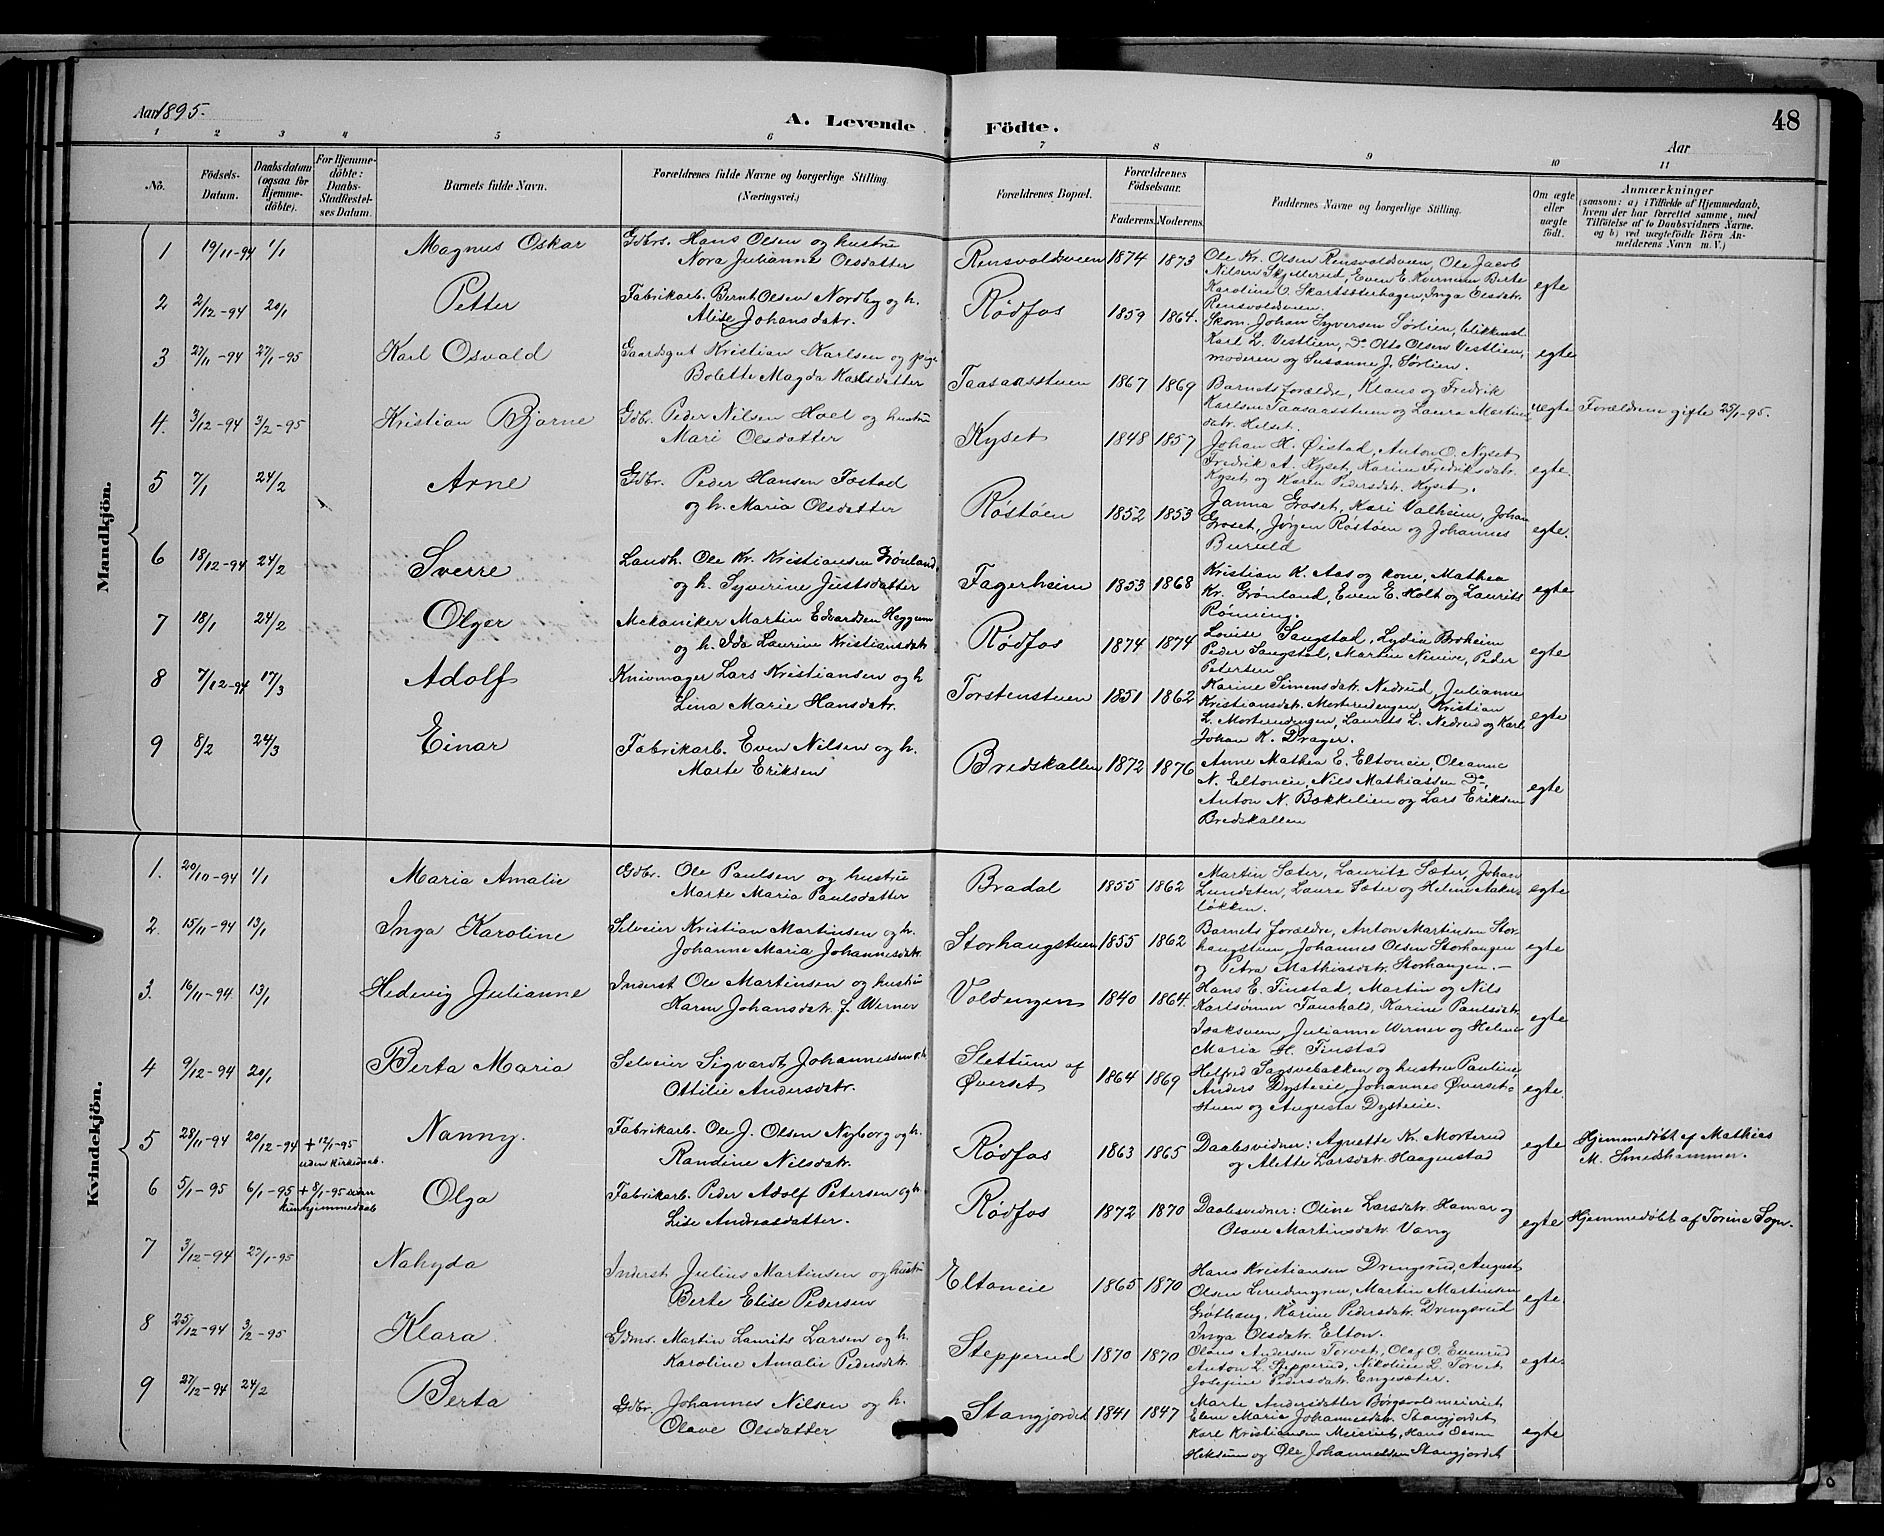 Aar 1895.
A. Levende Födte.
48
Aar
1 2 3 4 5 6 7 8 9 10 11
No.
Födsels-Datum.
Daabsdatum (ogsaa for Hjemme-döbte).
For Hjemme-döbte: Daabs-Stadfæstel-ses Datum.
Barnets fulde Navn.
Forældrenes fulde Navne og borgerlige Stilling (Næringsvei.)
Forældrenes Bopæl.
Forældrenes Födselsaar.
Faderens. Moderens.
Faddernes Navne og borgerlige Stilling.
Om ægte eller uægte födt.
Anmærkninger
(saasom: a) i Tilfælde af Hjemmedaab,
hvem der har forrettet samme, med
Tilföielse af to Daabsvidners Navne.
og b) ved uægtefödte Börn An-
melderens Navn m. V.)
Mandkjön.
1 19/11-94 1/1 Magnus Oskar
Gdbrs. Hans Olsen og hustru
Nora Julianne Olsdatter
Rensvoldsveen 1874 1873
Ole Kr. Olsen Rensvoldsveen, Ole Jacob
Nilsen Skjellerud, Even E. Kvernum Berte
Karoline O. Skartsæterhagen, Inga Elsdatr.
Rensvoldsveen.
egte
2 2/12-94 20/1 Petter
Fabrikarb. Bernt Olsen Nordby og h.
Alise Johansdatr.
Rødfos 1859 1864.
Skom. Johan Syversen Sørlien, blikkensl.
Karl L. Vestlien, Do Otto Olsen Vestlien,
moderen og Susanne J. Sørlien.
egte
3 27/11-94 27/1-95 Karl Osvald
Gaardsgut Kristian Karlsen og pige
Bolette Magda Karlsdatter
Taasaasstuen 1867 1869
Barnets forældre, Klaus og Fredrik
Karlsen Taasaasstuen og Laura Martins
datr. Helset.
uegte Forældrene gifte 25/1-95.
4. 3/12-94 3/2-95 Kristian Bjarne
Gdbr. Peder Nilsen Hoel og hustru
Mari Olsdatter
Kyset 1848 1857
Johan H. Øistad, Anton O. Kyset
Fredrik A. Kyset, Karine Fredriksdatr.
Kyset og Karen Pedersdatr. Kyset.
egte.
5 7/1 24/2 Arne
Gdbr. Peder Hansen Fostad
og h. Maria Olsdatter
Røstøen 1852 1853
Janna Groset, Kari Valheim, Johan
Groset, Jørgen Røstøen og Johannes
Buruld
egte.
6 18/12-94 24/2 Sverre
Landh. Ole Kr. Kristiansen Grønland
og h. Syverine Justsdatter
Fagerheim 1853 1868
Kristian K. Aas og kone, Mathea
Kr. Grønland, Even E. Holt og Laurits
Rønning.
egte
7 18/1 24/2 Olger
Mekaniker Martin Edvardsen Heggum
og h. Ida Laurine Kristiansdatr
Rødfos 1874 1874
Louise Sangstad, Lydia Broheim
Peder Sangstad, Martin Peder
Petersen
egte
8 7/12-94 17/3 Adolf
Knivmager Lars Kristiansen og h
Lina Marie Hansdatr.
Torstenstuen 1851 1862
Karine Simensdatr. Nedrud, Julianne
Kristiansdatr. Morterudengen, Kristian
L. Morterudengen, Laurits L. Nedrud og Karl
Johan K. Drager.
egte
9 8/2 24/3 Einar
Fabrikarb. Even Nilsen og h.
Marte Eriksen
Bredskallen 1872 1876
Anne Mathea E. Eltoneie, Oleanna
N. Eltoneie, Nils Mathiassen Do,
Anton N. Bækkelien og Lars Eriksen
Bredskallen
egte
Kvindekjön.
1. 20/10-94 1/1 Maria Amalie
Gdbr. Ole Paulsen og hustru
Marte Maria Paulsdatter
Bradal 1855 1862
Martin Sæter, Laurits Sæter, Johan
Lundsten, Laura Sæter og Helene Aaker-
løkken.
egte
2. 15/11-94 13/1 Inga Karoline
Selveier Kristian Martinsen og h.
Johanne Maria Johannesdatr.
Storhaugstuen 1855 1862
Barnets forældre, Anton Martinsen Stor-
haugstuen, Johannes Olsen Storhaugen
og Petra Mathiasdatr. Storhaugen.-
egte
3. 16/11-94 13/1 Hedevig Julianne
Inderst Ole Martinsen og hustru
Karen Johansdatr. f. Werner
Voldengen 1840 1864.
Hans E. Finstad, Martin og Nils
Karlsønner Fauchald, Karine Paulsdatr.
Isaksveen, Julianne Werner og Helene
Maria H. Finstad
egte
4 9/12-94 20/1 Berta Maria
Selveier Sigvardt Johannessen og h.
Ottilie Andersdatr.
Slettum af
Øverset
1864 1869
Helfred Sagsvebakken og hustru Pauline,
Anders Dysteeie, Johannes Øverset-
stuen og Augusta Dysteeie.
egte.
5 28/11-94 20/12-94 + 12/1-95
uden Kirkedaab.
Nanny.
Fabrikarb. Ole J. Olsen Nyborg og h.
Randine Nilsdatr.
Rødfos 1863 1865
Daabsvidner: Agnette Kr. Morterud
og Alette Larsdatr. Haagenstad
egte
Hjemmedøbt af Mathias
M. Smedshammer.
6 5/1-95 6/1-95 + 8/1-95
hjemmedaab
Olga
Fabrikarb. Peder Adolf Petersen og h.
Lise Andreasdatter.
Rødfos 1872 1870
Daabsvidner: Oline Larsdatr. Hamar og
Olave Martinsdatr. Vang
egte Hjemmedøbt af Torine Sogn.
7 3/12-94 27/1-95 Nahyda
Inderst Julius Martinsen og hustru
Berte Elise Pedersen
Eltoneie 1865 1870
Hans Kristiansen Drengsrud, August
Olsen Lerudengen, Martin Martinsen
Grøthaug, Karine Pedersdatr. Drengsrud
Inga Olsdatr. Elton.
egte.
8 25/12-94 3/2-95 Klara.
Gdms. Martin Laurits Larsen og h.
Karoline Amalie Pedersdatr.
Stepperud 1870 1870
Olaus Andersen Torvet, Olaf O. Evenrud
Anton L. Stepperud, Nikoline L. Torvet
Josefine Pedersdatr. Engesæter.
egte.
9 27/12-94 24/2 Berta
Gdbr. Johannes Nilsen og h.
Olave Olsdatter
Stangjordet 1841 1847
Marte Andersdatter Børgsvoldmeieriet
Elene Marie Johannesdatr. Stangjordet
Karl Kristiansen Meieriet, Hans Olsen
Heksum og Ole Johannessen Stangjordet
egte